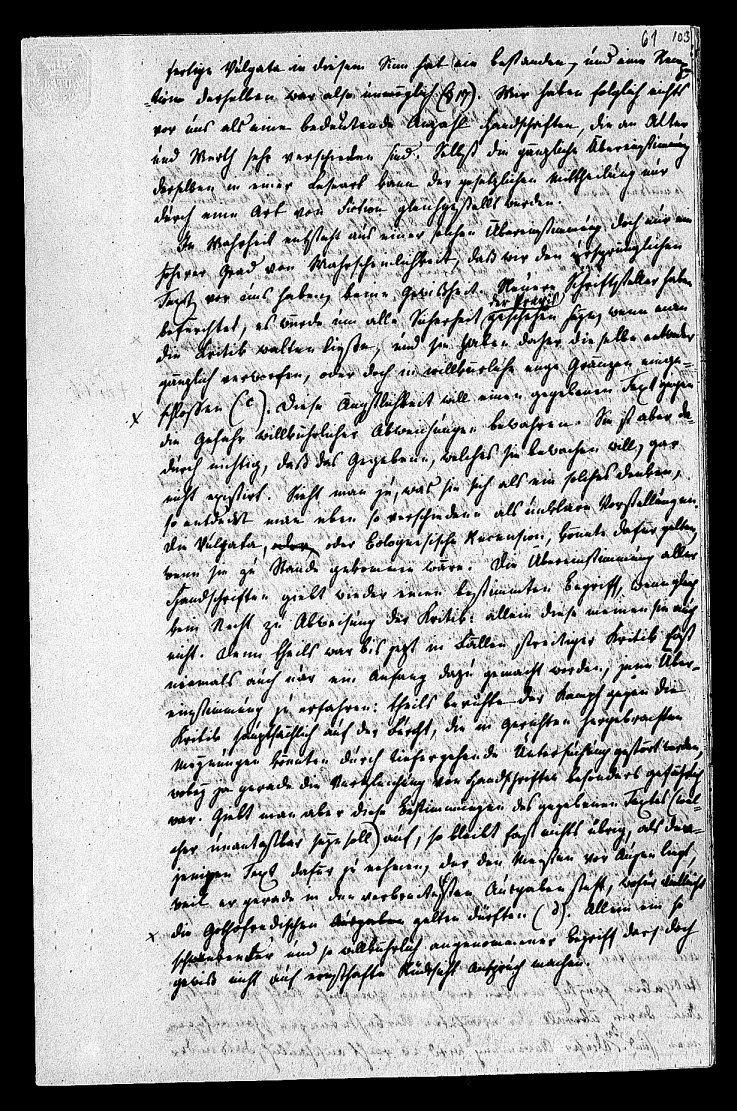 61 103
fertige Vulgata in diesem Sinn hat nie bestanden, und eine Recep-
tion derselben war also unmöglich (§ 17). Wir haben folglich nichts
vor uns als eine bedeutende Anzahl Handschriften, die an Alter
und Werth sehr verschieden sind. Selbst die gänzliche Übereinstimmung
derselben in einer Leseart kann der gesetzlichen Mittheilung nur
durch eine Art von Fiction gleichgestellt werden.
In Wahrheit entsteht aus einer solchen Übereinstimmung doch nur ein
höherer Grad von Wahrscheinlichkeit, daß wir den ursprünglichen
Text vor uns haben, keine Gewißheit. Neuere Schriftsteller haben
der Praxis
befürchtet, es würde um alle Sicherheit geschehen seyn, wenn man
die Kritik walten ließe, und sie haben daher dieselbe entweder
gänzlich verworfen, oder doch in willkürliche enge Gränzen einge-
schlossen (c). Diese Ängstlichkeit will einen gegebenen Text gegen
die Gefahr willkührlicher Abweichungen bewahren. Sie ist aber da-
durch nichtig, daß das Gegebene, welches sie bewachen will, gar
nicht existirt. Sieht man zu, was sie sich als ein solches denken,
so entdeckt man eben so verschiedene als unklare Vorstellungen.
Die Vulgata, oder oder Bolognesische Recension, könnte dafür gelten,
wenn sie zu Stande gekommen wäre. Die Übereinstimmung aller
Handschriften giebt wieder einen bestimmten Begriff, wenn gleich
kein Recht zu Abweisung der Kritik: allein diese meinen sie auch
nicht. Denn theils war bis jetzt in Fällen streitiger Kritik fast
niemals auch nur ein Anfang dazu gemacht worden, jene Über-
einstimmung zu erfahren: theils beruhte der Kampf gegen die
Kritik hauptsächlich auf der Furcht, die in Gerichten hergebrachten
Meynungen könnten durch tiefer gehende Untersuchung gestört werden,
wobey ja gerade die Vergleichung von Handschriften besonders gefährlich
war. Giebt man aber diese Bestimmungen des gegebenen Textes (wel-
cher unantastbar seyn soll) auf, so bleibt fast nichts übrig, als den-
jenigen Text dafür zu nehmen, der den Meisten vor Augen liegt,
weil er gerade in den verbreitetsten Ausgaben steht, wofür vielleicht
die Gothofredischen Ausgaben gelten dürften (d). Allein ein so
schwankender und so willkührlich angenommener Begriff darf doch
gewiß nicht auf ernsthafte Rücksicht Anspruch machen.